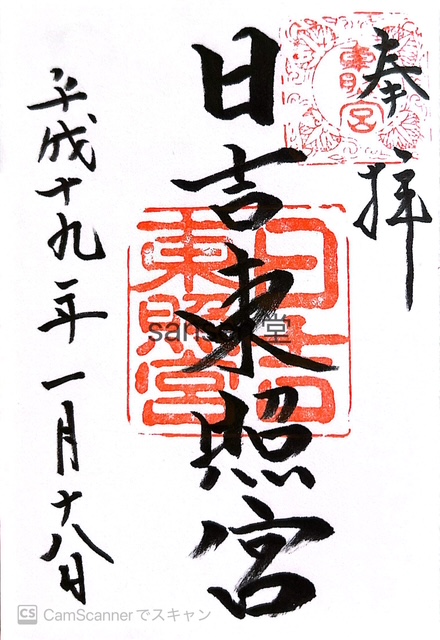 奉拝
東照宮
日吉東照宮
日吉東照宮
平成十九年一月十八日
CS CamScannerでスキャン